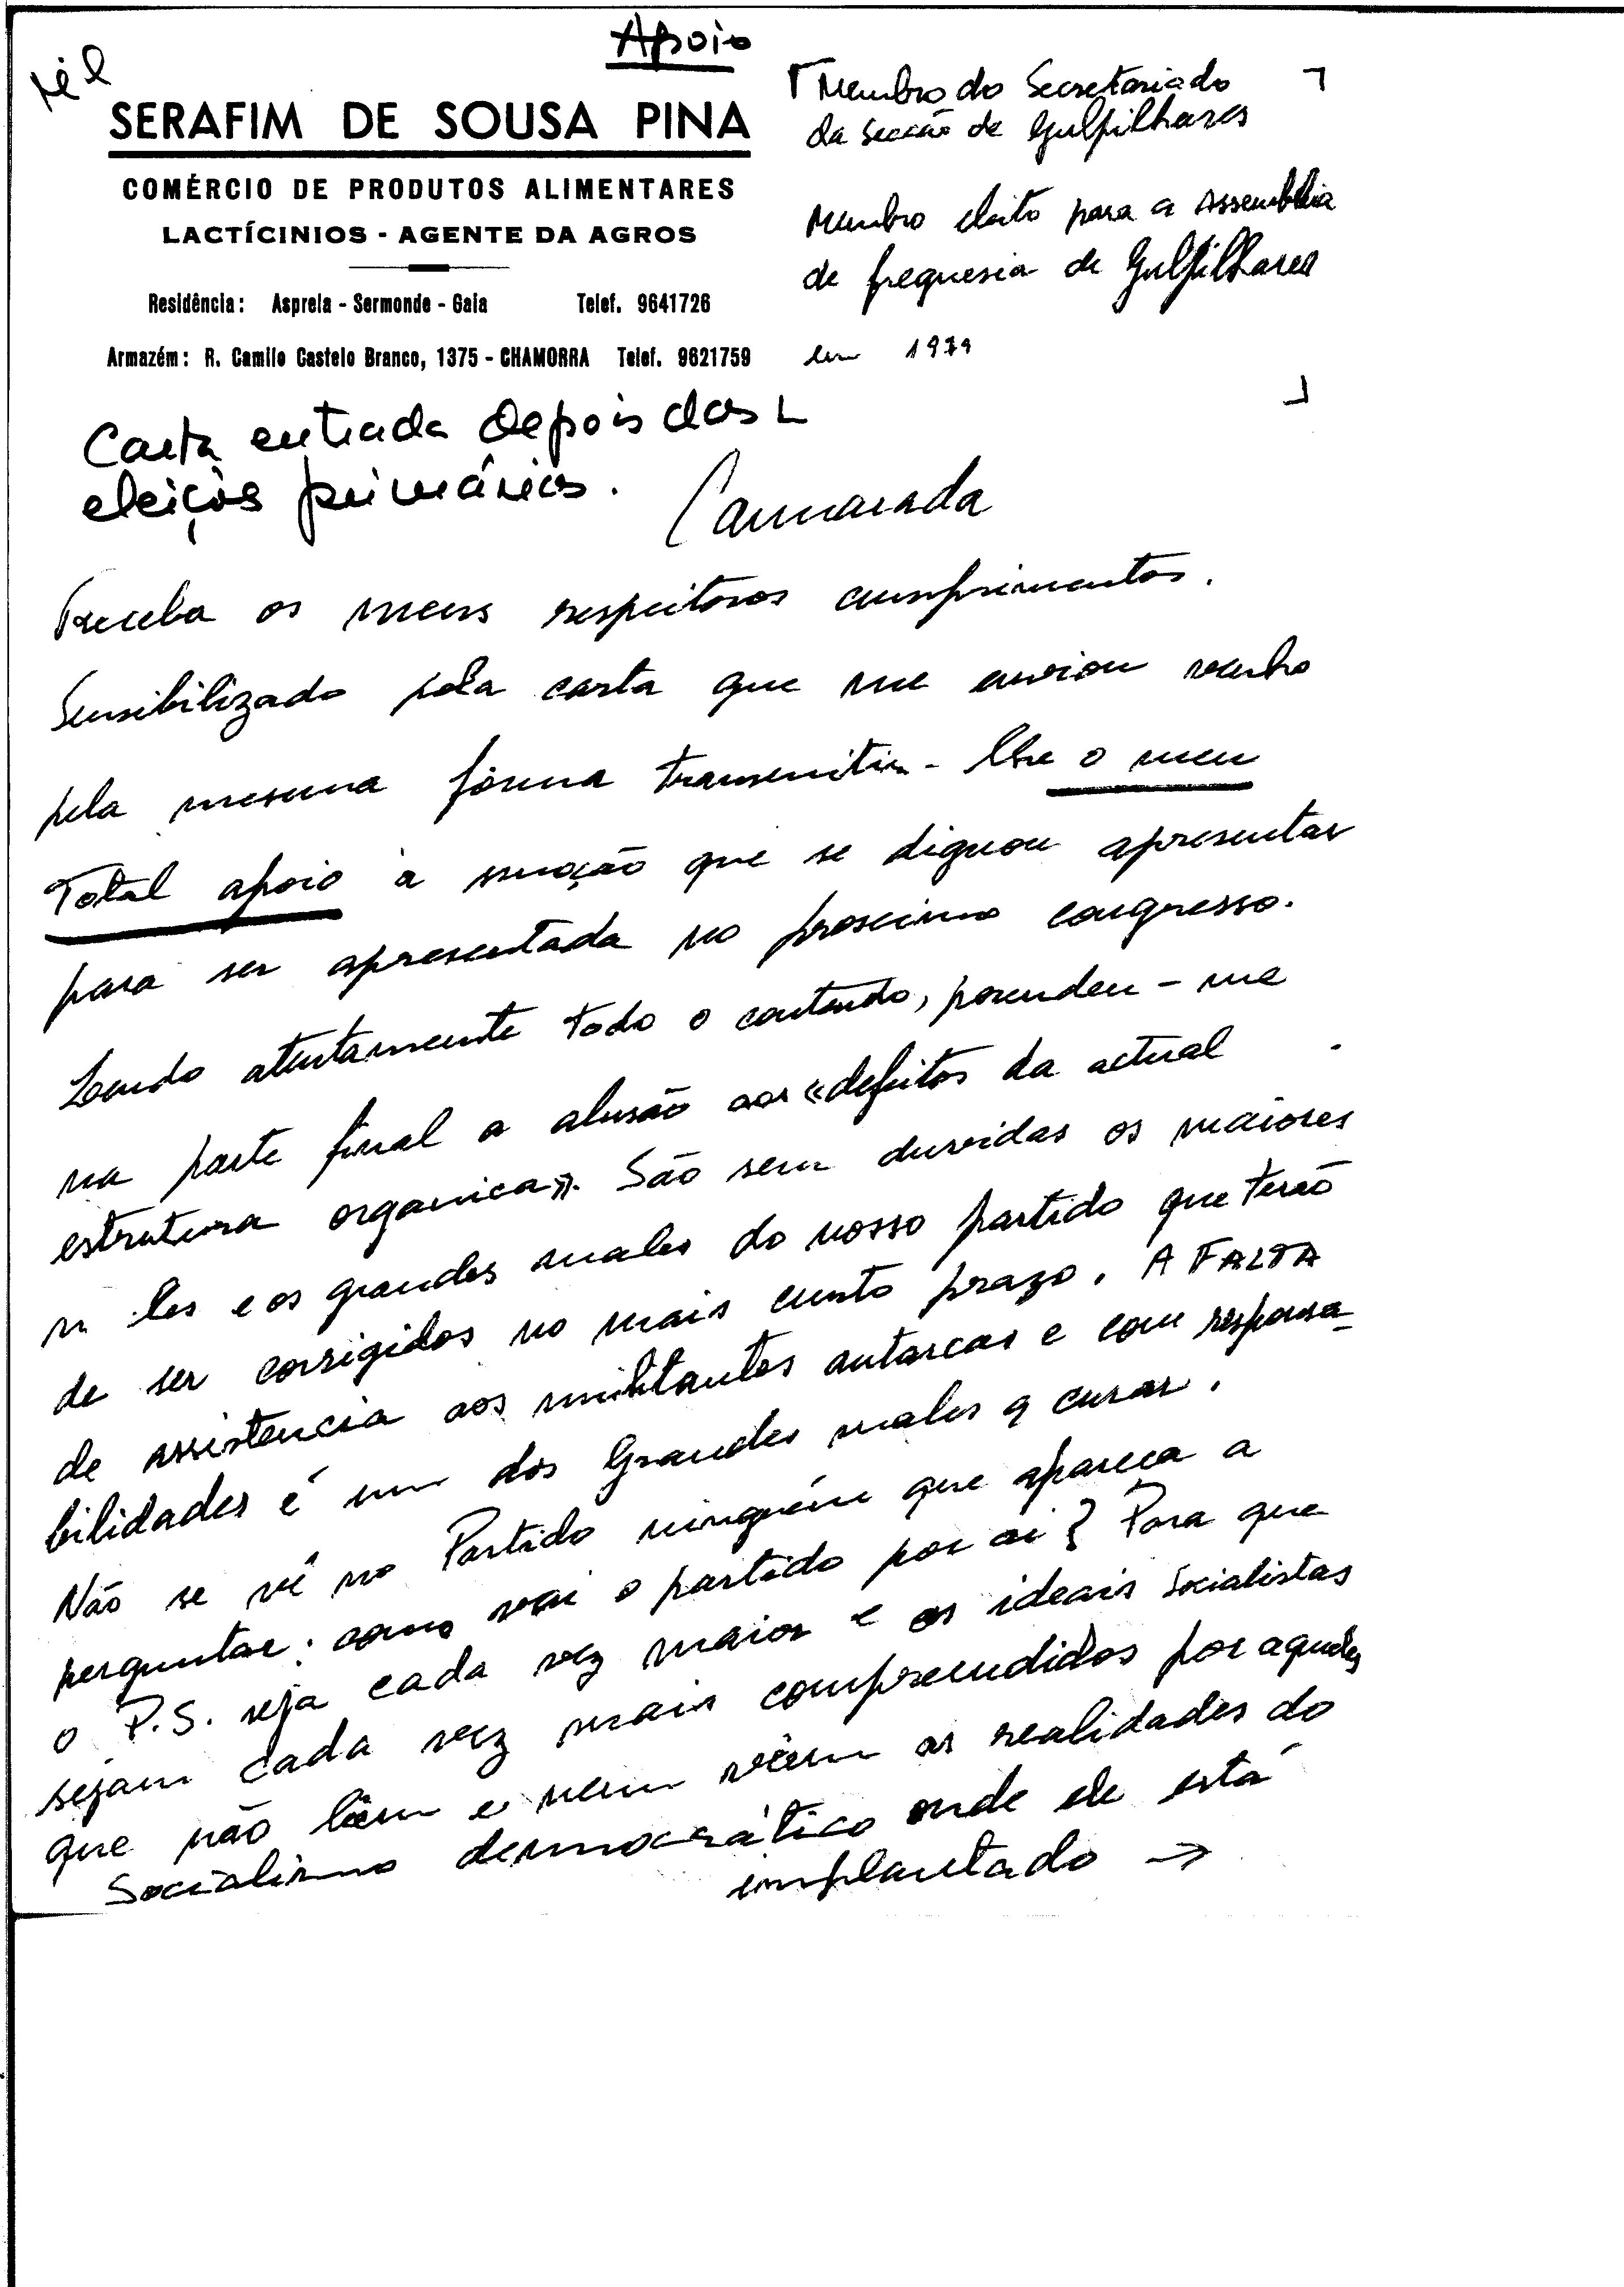 Apoio
SERAFIM DE SOUSA PINA
COMÉRCIO DE PRODUTOS ALIMENTARES
LACTÍCINIOS - AGENTE DA AGROS
Residência: Asprela - Sermonde - Gaia Telef. 9641726
Armazém: R. Camilo Castelo Branco, 1375 - CHAMORRA Telef. 9621759
Membro do Secretariado
da Secção de Gulpilhares
Membro eleito para a Assembleia
de freguesia de Gulpilhares
em 1979
Carta entrada depois das
eleições primárias.
Cammarada
Receba os meus respeitosos cumprimentos.
Sensibilizado pela carta que me enviou venho
pela mesma fórma transmitir-lhe o meu
Total apoio à moção que se dignou apresentar
para ser apresentada no proximo congresso.
Lendo atentamente todo o conteudo, prendeu-me
na parte final a alusão aos «defeitos da actual
estrutura organica». São sem duvidas os maiores
e os grandes males do nosso partido que terão
de ser corrigidos no mais curto prazo. A FALTA
de assistencia aos militantes autarcas e com responsa-
bilidades é um dos grandes males a curar.
Não se vê no Partido ninguém que apareça a
perguntar: como vai o partido por ai? Para que
o P.S. seja cada vez maior e os ideais Socialistas
sejam cada vez mais compreendidos por aqueles
que não lêem e nem vêem as realidades do
Socialismo democrático onde ele está
implantado →